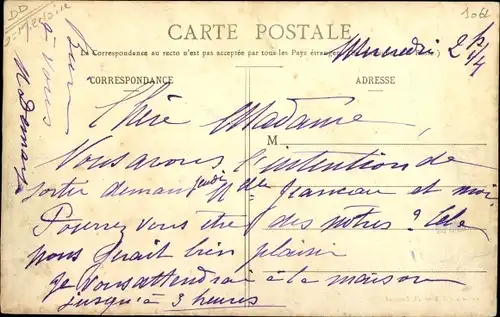 CARTE POSTALE
La Correspondance au recto n'est pas acceptée par tous les Pays étrangers
Mercredi 2 h 1/4
CORRESPONDANCE
ADRESSE
Chère Madame,
M
Vous avons l'intention de
sortir demain jeudi Mlle et moi
Pourrez vous être des nôtres? Cela
nous ferait bien plaisir
Je vous attendrai à la maison
jusqu'à 3 heures
Bien
à vous